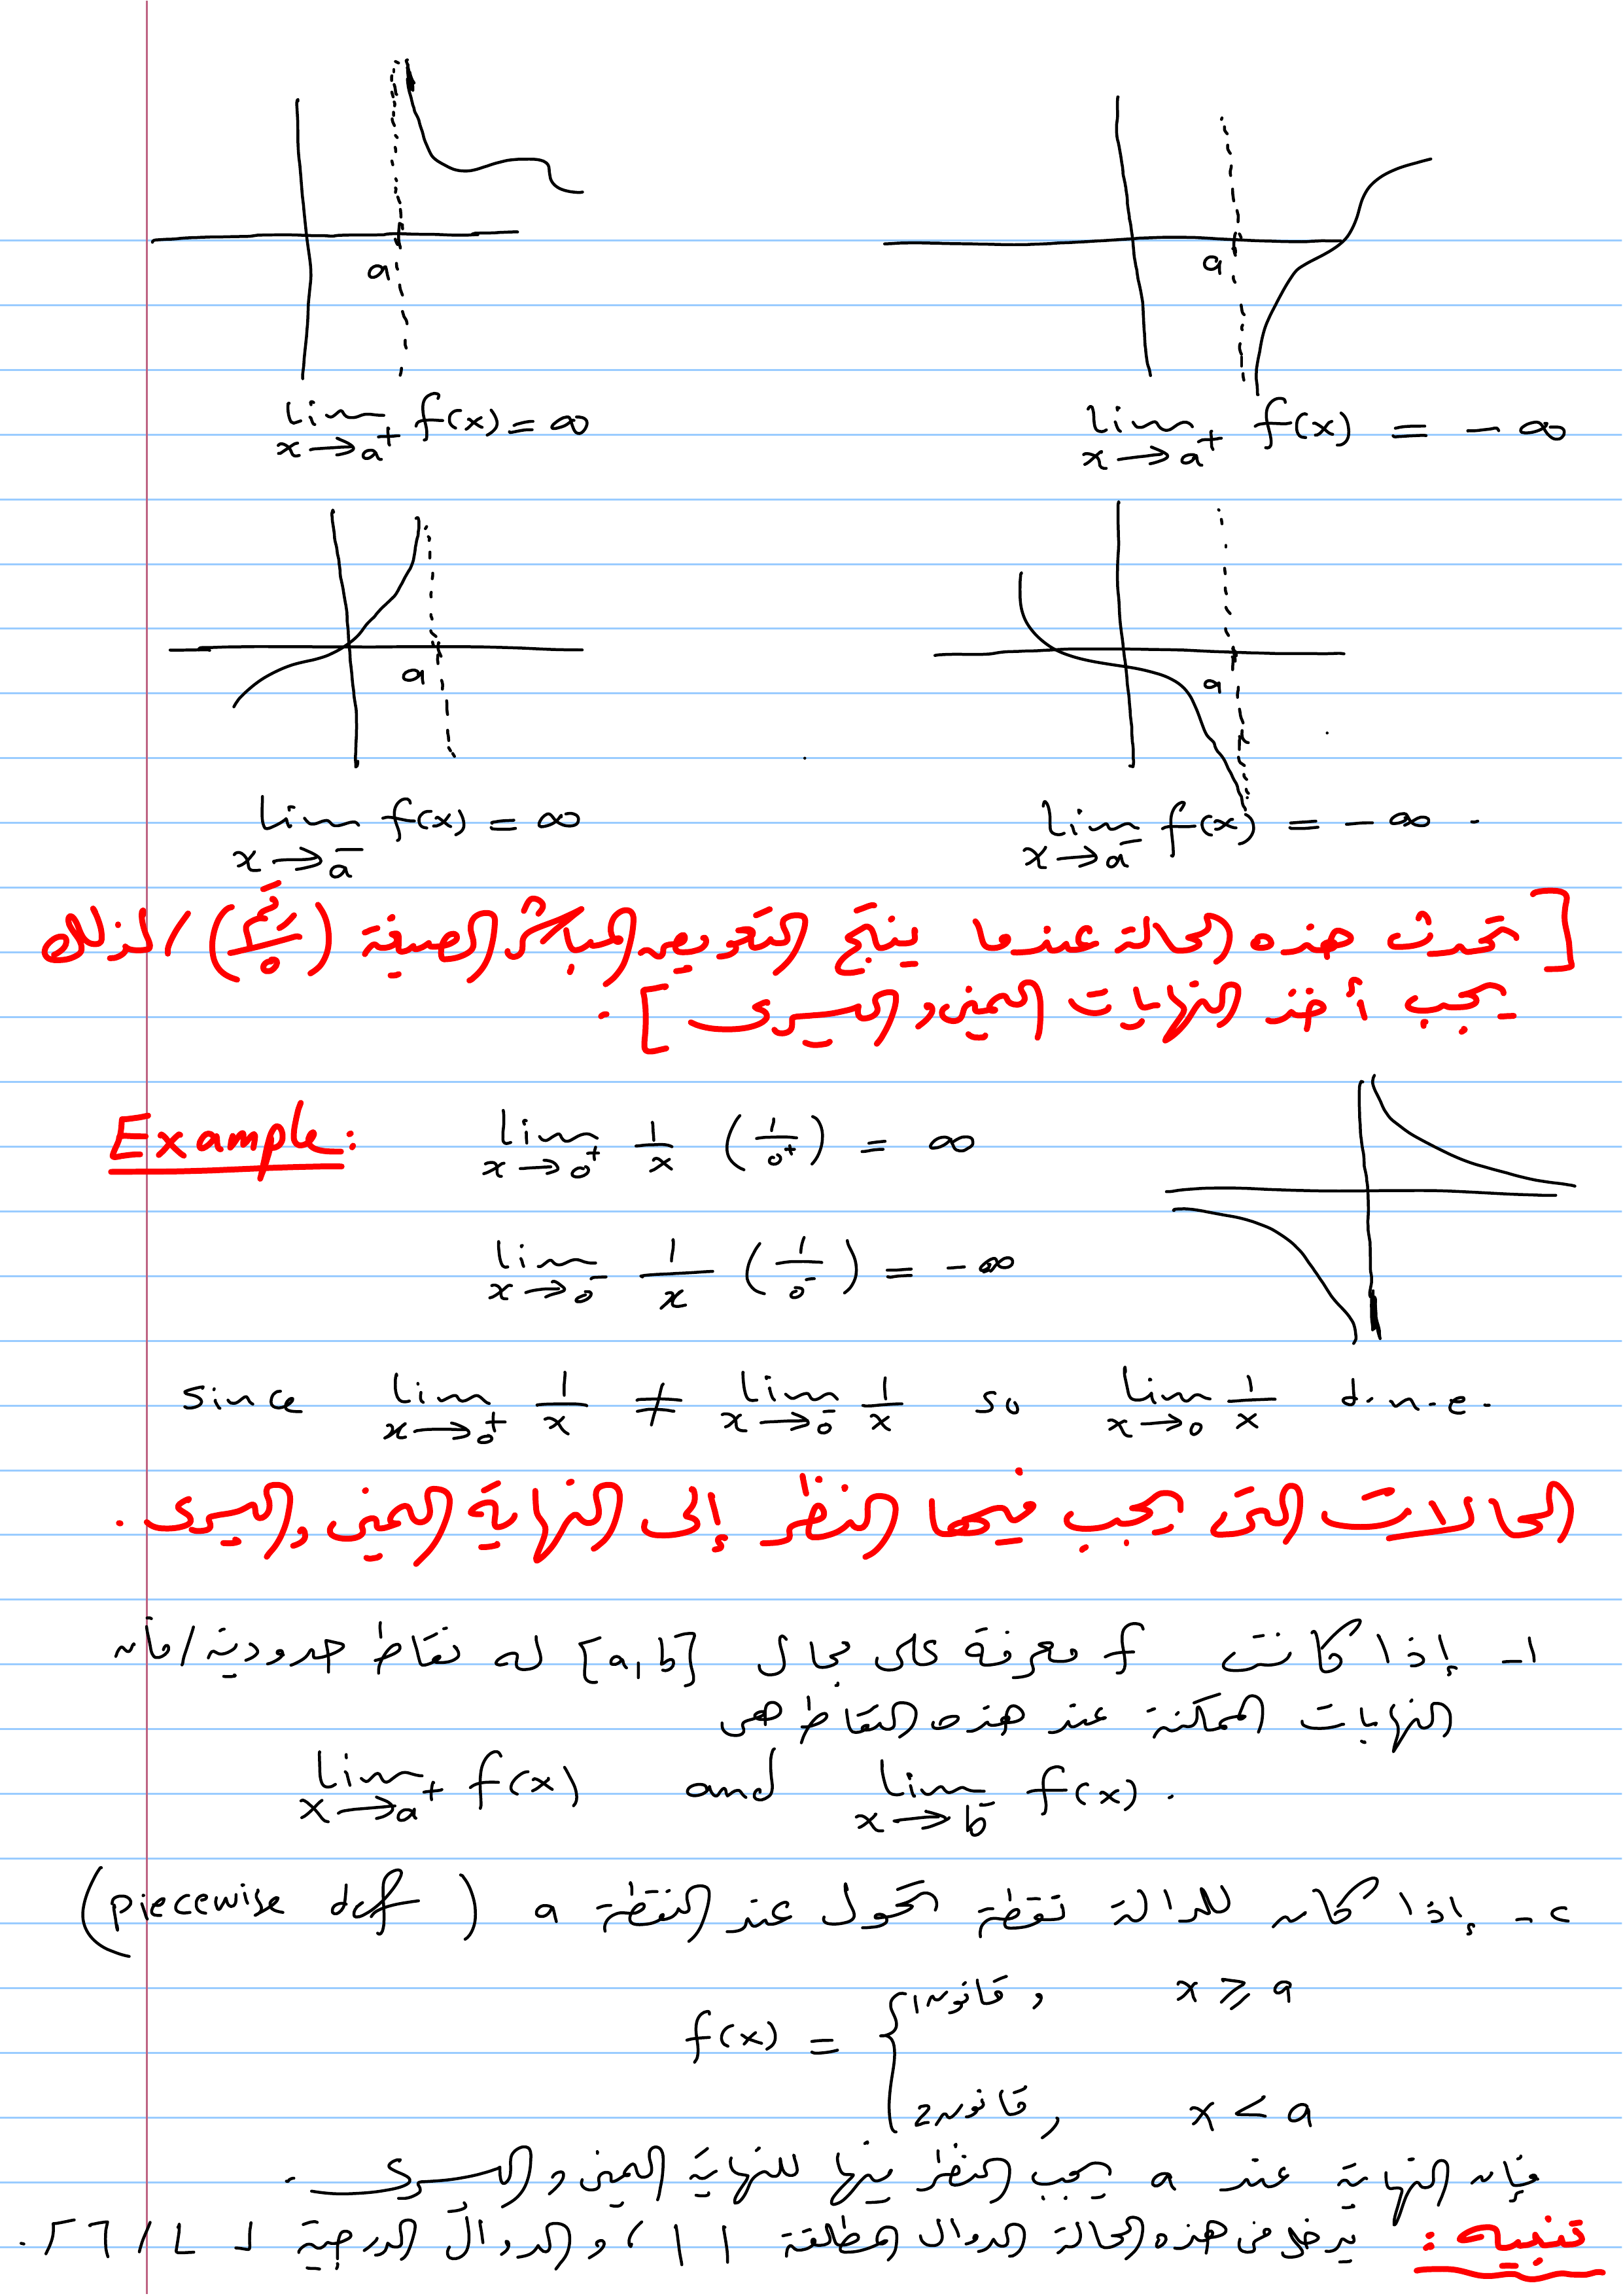 a
a
lim x→a⁺ f(x) = ∞
lim x→a⁺ f(x) = -∞
a
a
lim x→a⁻ f(x) = ∞
lim x→a⁻ f(x) = -∞
[ تحدث هذه الحالة عندما ينتج التعويض المباشر الصيغة (رقم/0) ، لذلك
يجب أخذ النهايات اليمنى و اليسرى ] .
Example: lim x→0⁺ 1/x (1/0⁺) = ∞
lim x→0⁻ 1/x (1/0⁻) = -∞
since lim x→0⁺ 1/x ≠ lim x→0⁻ 1/x so lim x→0 1/x d.n.e.
الحالات التي يجب فيها النظر إلى النهاية اليمنى و اليسرى .
١- إذا كانت f معرفة على مجال [a,b] له نقاط حدودية ، فإن
النهايات الممكنة عند هذه النقاط هي
lim x→a⁺ f(x) and lim x→b⁻ f(x) .
٢- إذا كان للدالة نقطة تحول عند النقطة a (piecewise def)
f(x) = { قانون 1 , x ⩾ a
قانون 2 , x < a
فإن النهاية عند a يجب النظر فيها للنهاية اليمنى و اليسرى .
تنبيه : يدخل في هذه الحالة الدوال المطلقة | | ، و الدوال الدرجية ⌊ ⌋ ، ⌈ ⌉ .